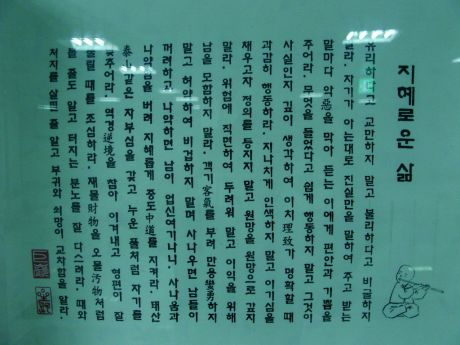 지혜로운 삶
유리하다고 교만하지 말고 불리하다고 비굴하지
말라. 자기가 아는대로 진실만을 말하여 주고 받는
말마다 악惡을 막아 듣는 이에게 편안과 기쁨을
주어라. 무엇을 들었다고 쉽게 행동하지 말고 그것이
사실인지 깊이 생각하여 이치理致가 명확할 때
과감히 행동하라. 지나치게 인색하지 말고 이기심을
채우고자 정의를 등지지 말고 원망을 원망으로 갚지
말라. 위험에 직면하여 두려워 말고 이익을 위해
남을 모함하지 말라. 객기客氣를 부려 만용蠻勇하지
말고 허약하여 비겁하지 말며 사나우면 남들이
꺼려하고 나약하면 남이 업신여기나니. 사나움과
나약함을 버려 지혜롭게 중도中道를 지켜라. 태산
泰山같은 자부심을 갖고 누운 풀처럼 자기를
낮추어라. 역경逆境을 참아 이겨내고 형편이 잘
풀릴 때를 조심하라. 재물財物을 오물汚物처럼
볼 줄도 알고 터지는 분노를 잘 다스려라. 때와
처지를 살필 줄 알고 부귀와 쇠망이 교차함을 알라.